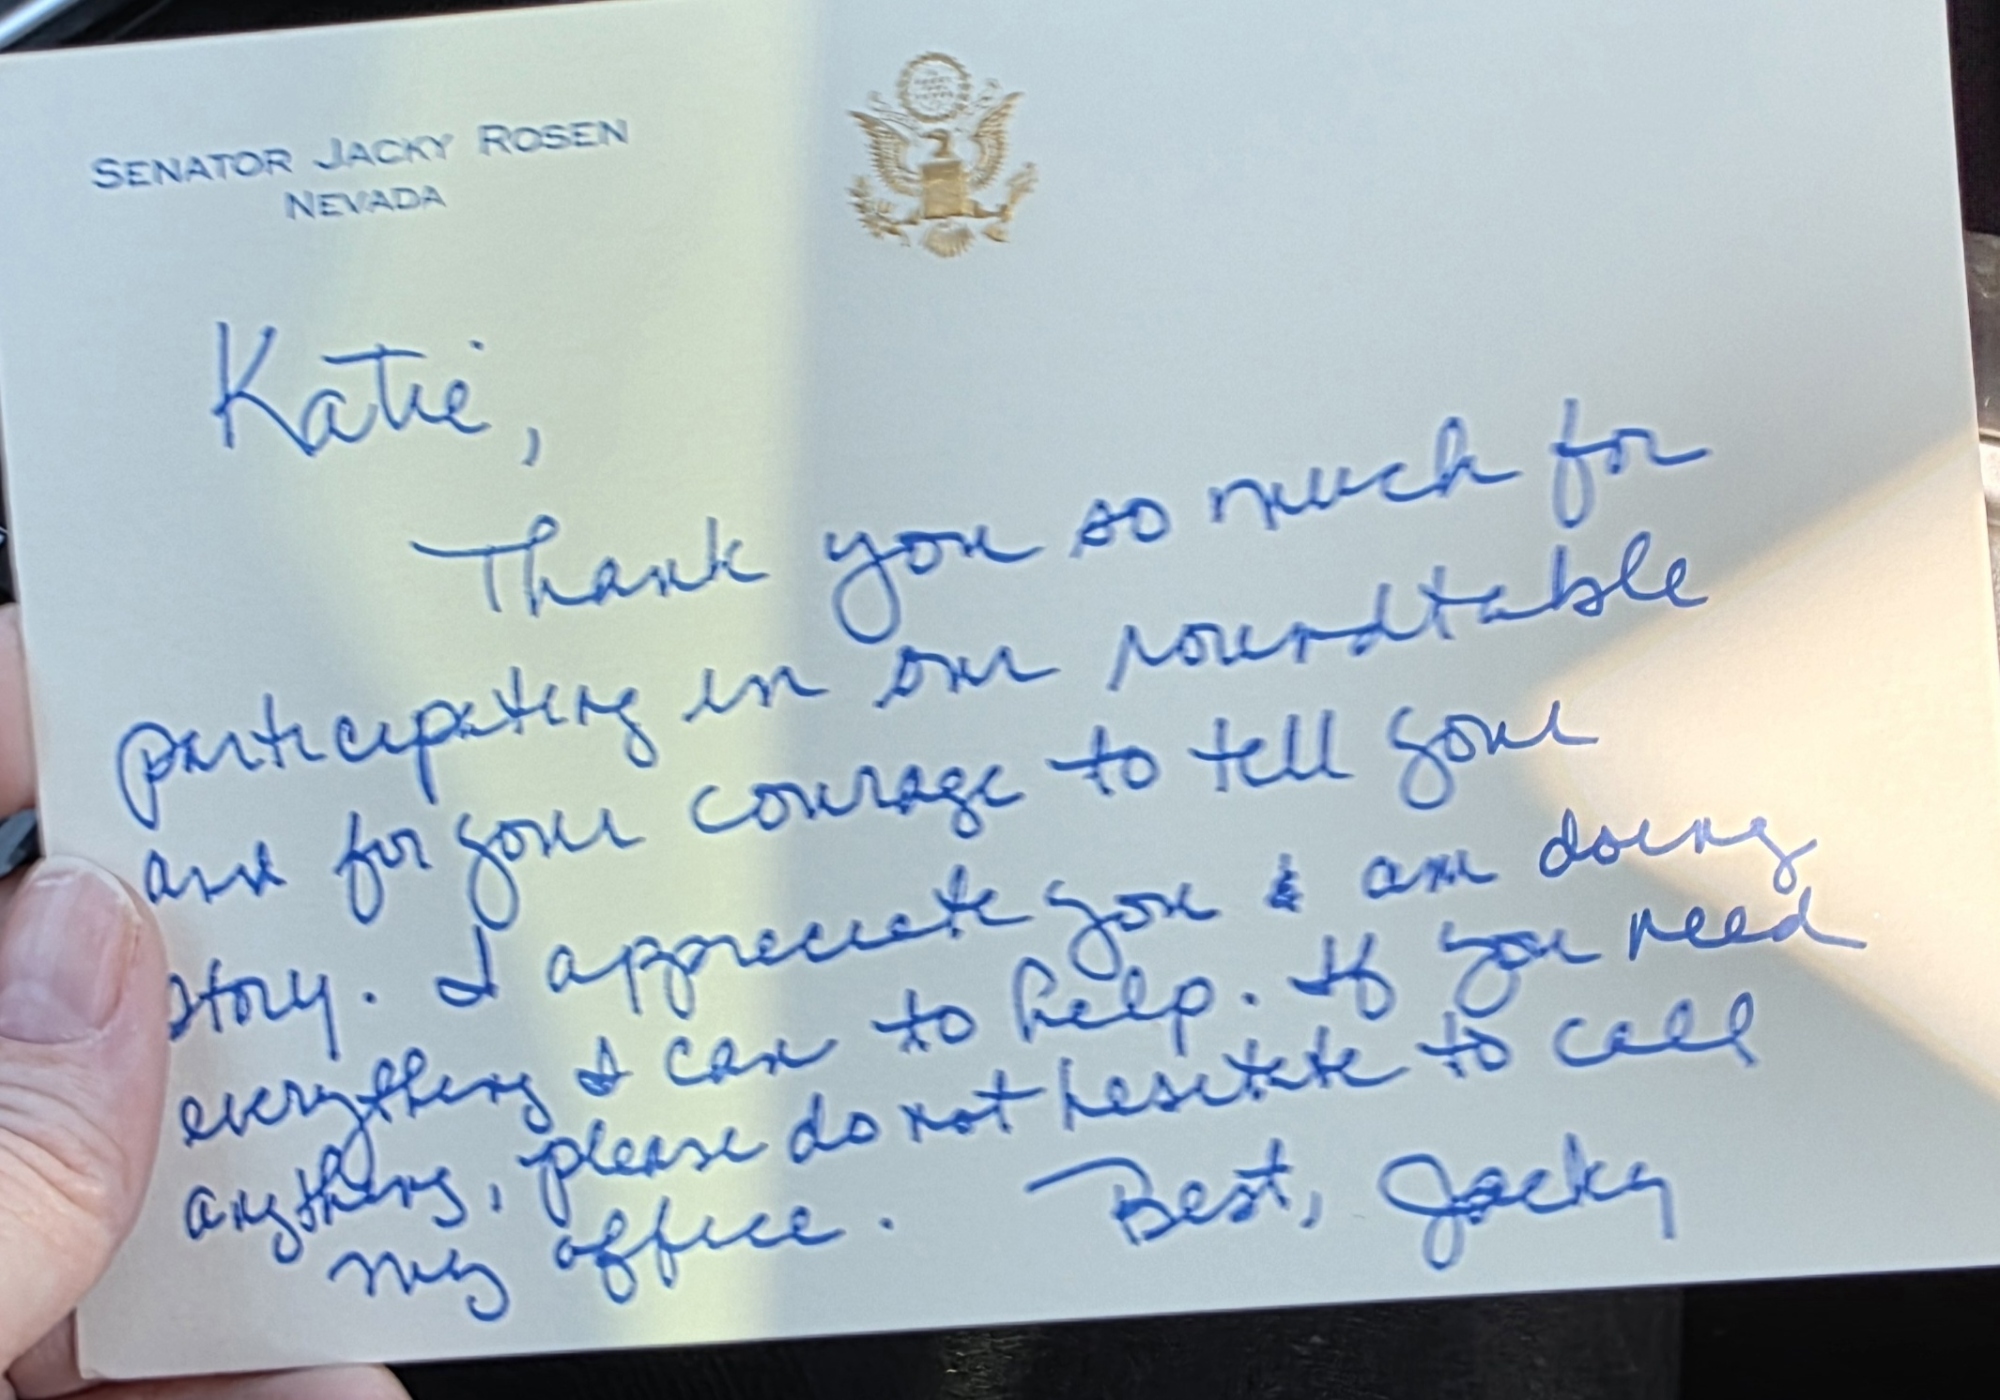 SENATOR JACKY ROSEN
NEVADA
Katie,
Thank you so much for
participating in our roundtable
and for your courage to tell your
story. I appreciate you & am doing
everything I can to help. If you need
anything, please do not hesitate to call
my office. Best, Jacky